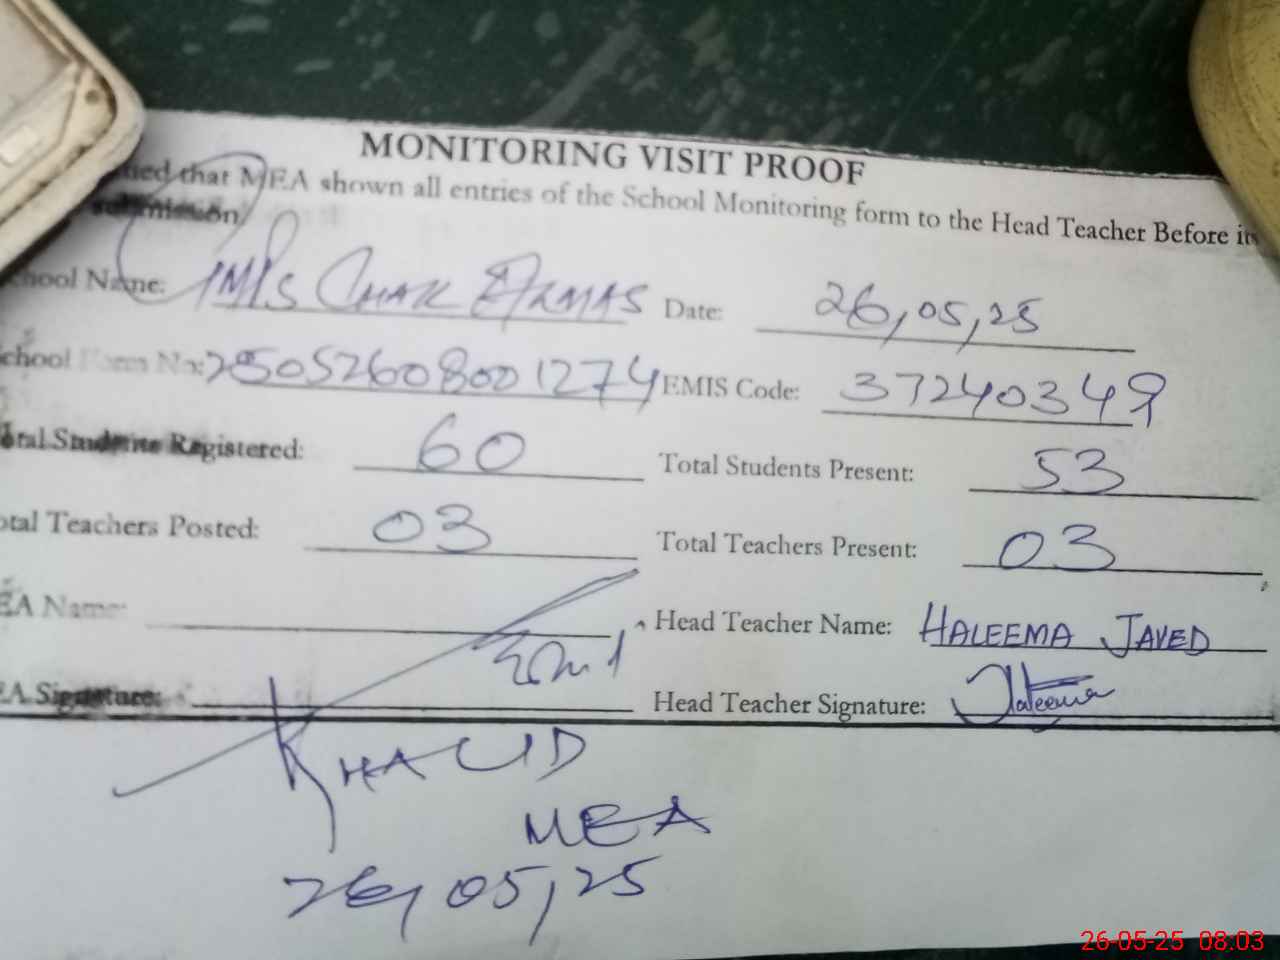 MONITORING VISIT PROOF
that MEA shown all entries of the School Monitoring form to the Head Teacher Before its
submission
School Name: CHAK Date: 26,05,25
School Form No: 25052608001274 EMIS Code: 37240349
Total Students Registered: 60 Total Students Present: 53
Total Teachers Posted: 03 Total Teachers Present: 03
MEA Name: Head Teacher Name: HALEEMA JAVED
MEA Signature: Head Teacher Signature: Haleema
KHALID
MEA
26,05,25
26-05-25 08:03